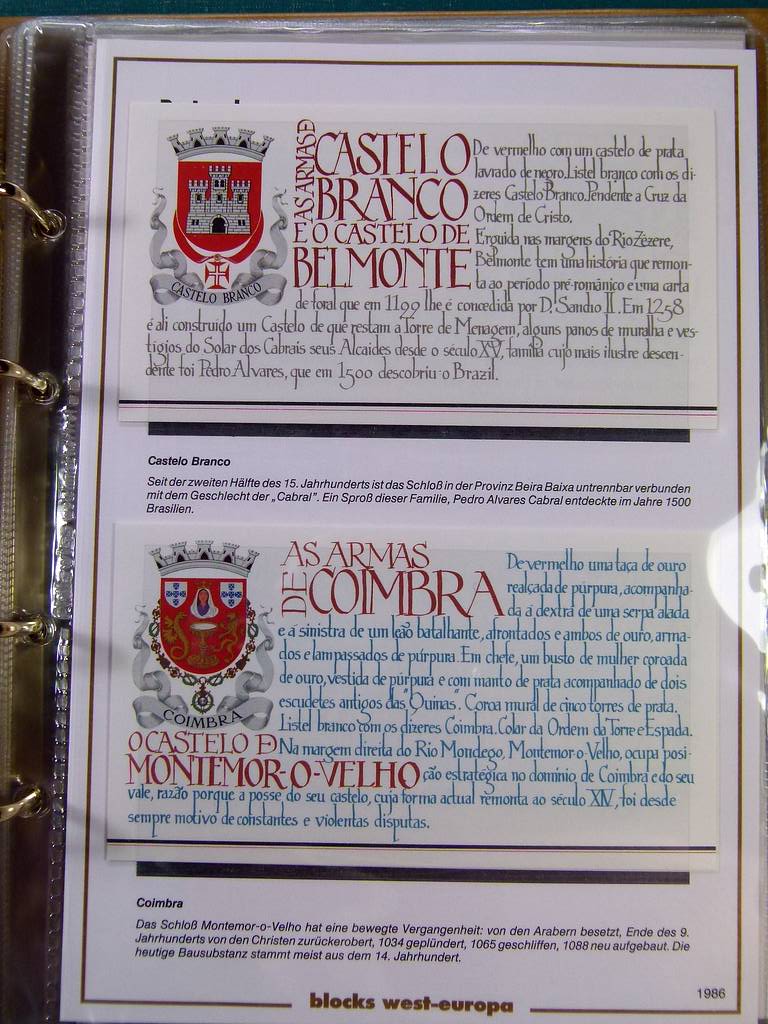 CASTELO BRANCO
AS ARMAS D
CASTELO
BRANCO
E O CASTELO DE
BELMONTE
De vermelho com um castelo de prata
lavrado de negro. Listel branco com os di-
zeres Castelo Branco. Pendente a Cruz da
Ordem de Cristo.
Erguida nas margens do Rio Zêzere,
Belmonte tem uma história que remon-
ta ao período pré-românico e uma carta
de foral que em 1199 lhe é concedida por D. Sancho II. Em 1258
é ali construído um Castelo de que restam a Torre de Menagem, alguns panos de muralha e ves-
tígios do Solar dos Cabrais seus Alcaides desde o século XV, família cujo mais ilustre descen-
dente foi Pedro Alvares, que em 1500 descobriu o Brazil.
Castelo Branco
Seit der zweiten Hälfte des 15. Jahrhunderts ist das Schloß in der Provinz Beira Baixa untrennbar verbunden
mit dem Geschlecht der „Cabral”. Ein Sproß dieser Familie, Pedro Alvares Cabral entdeckte im Jahre 1500
Brasilien.
COIMBRA
AS ARMAS
DE COIMBRA
De vermelho uma taça de ouro
realçada de púrpura, acompanha-
da à dextra de uma serpe alada
e à sinistra de um leão batalhante, afrontados e ambos de ouro, arma-
dos e lampassados de púrpura. Em chefe, um busto de mulher coroada
de ouro, vestida de púrpura e com manto de prata acompanhado de dois
escudetes antigos das "Quinas". Coroa mural de cinco torres de prata.
Listel branco com os dizeres Coimbra. Colar da Ordem da Torre e Espada.
O CASTELO D
MONTEMOR-O-VELHO
Na margem direita do Rio Mondego, Montemor-o-Velho, ocupa posi-
ção estratégica no domínio de Coimbra e do seu
vale, razão porque a posse do seu castelo, cuja forma actual remonta ao século XIV, foi desde
sempre motivo de constantes e violentas disputas.
Coimbra
Das Schloß Montemor-o-Velho hat eine bewegte Vergangenheit: von den Arabern besetzt, Ende des 9.
Jahrhunderts von den Christen zurückerobert, 1034 geplündert, 1065 geschliffen, 1088 neu aufgebaut. Die
heutige Bausubstanz stammt meist aus dem 14. Jahrhundert.
1986
blocks west-europa